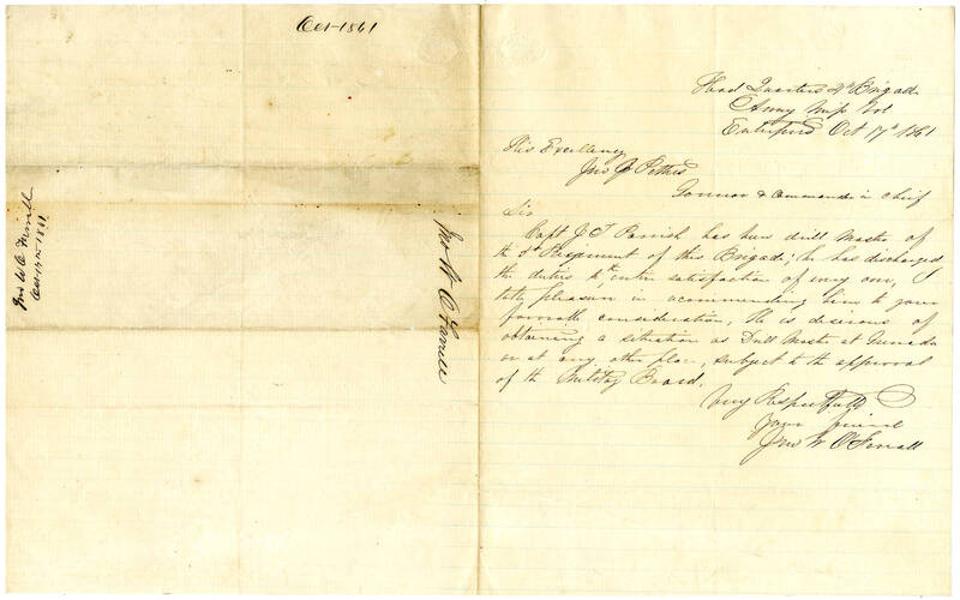 Oct-1861
Jno W O Ferrall
Oct 17th 1861
Jno W O'Farrell
Head Quarters 4th Brigade
Army Miss Vol
Enterprise Oct 17th 1861
His Excellency
Jno J Pettus
Govnor & Commander in Chief
Sir
Capt J T Parrish has been drill Master of
the 3d Regiment of this Brigade; he has discharged
the duties to the entire satisfaction of every one, I
take pleasure in recommending him to your
favorable consideration, He is desirous of
obtaining a situation as Drill Master at Grenada
or at any other place, subject to the approval
of the Military Board.
Very Respectfully
your friend
Jno W O'Ferrall